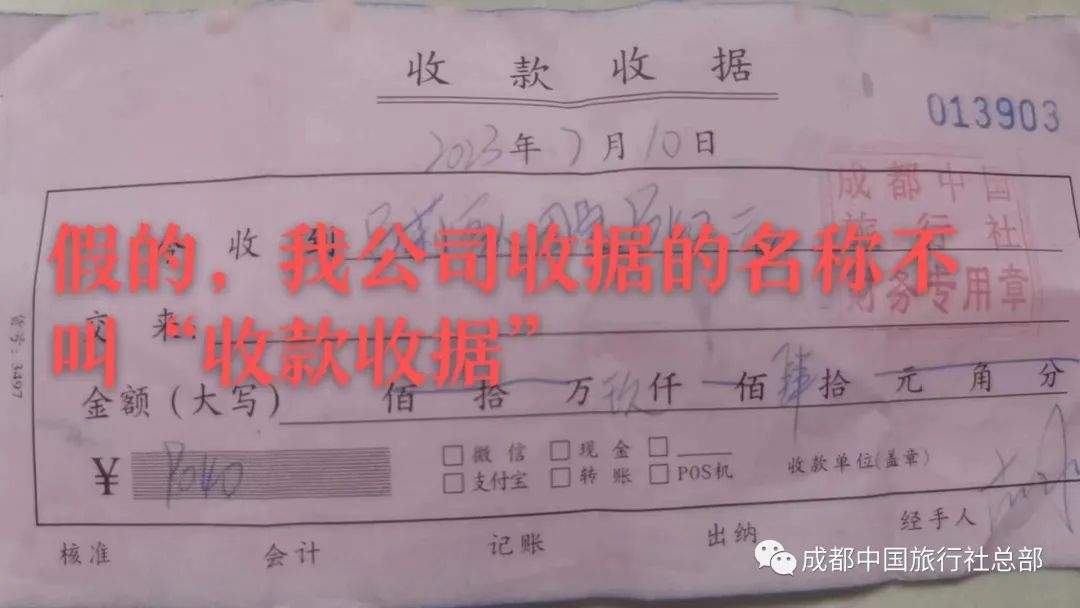 收款收据
013903
2023年7月10日
成都中国
旅行社
财务专用章
收
假的，我公司收据的名称不
叫“收款收据”
交来
货号：3497
金额（大写） 佰 拾 万 玖仟 佰 肆拾 元 角 分
¥ 9040
□微信 □现金 □
□支付宝 □转账 □POS机
收款单位(盖章)
核准 会计 记账 出纳 经手人
成都中国旅行社总部